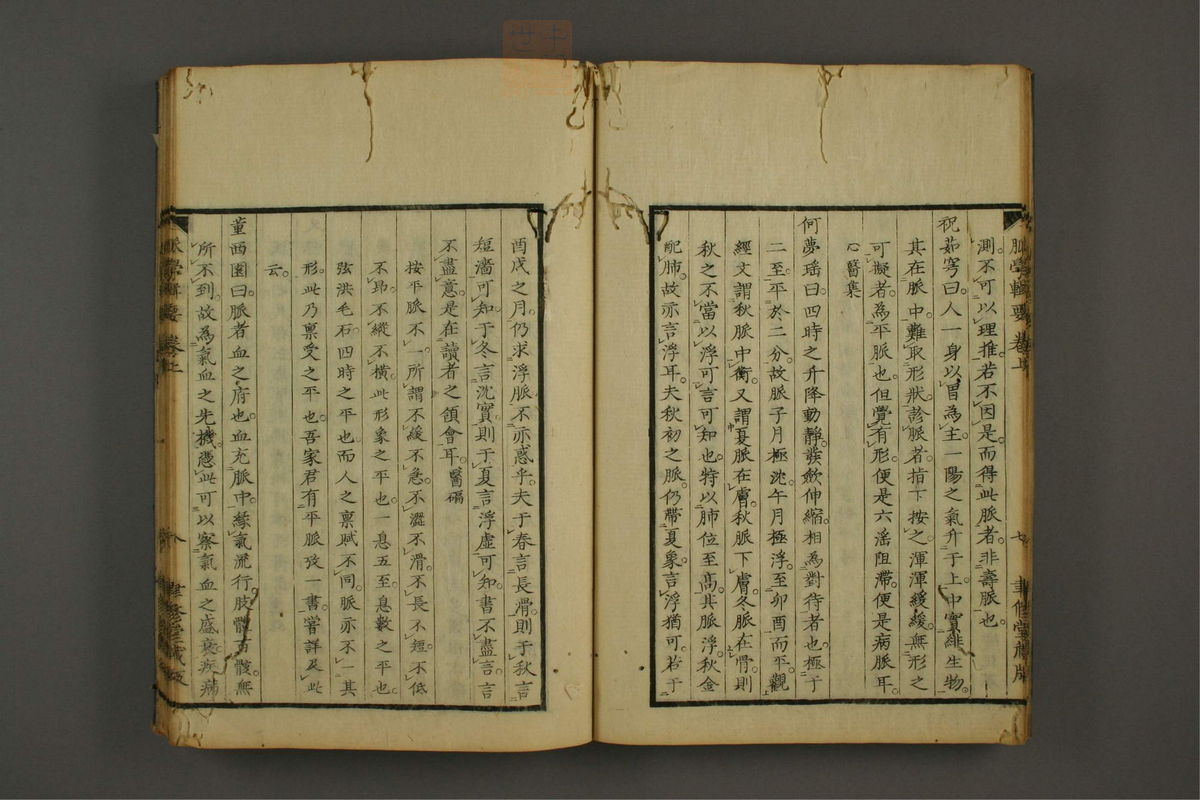 脈學輯要 卷上
七
聿修堂藏版
測。不可以理推。若不因是而得此脈者。非壽脈也
祝茹穹曰。人一身以胃為主。一陽之氣升于上。中實維生物。
其在脈中。難取形狀。診脈者。指下按之。渾渾緩緩。無形之
可擬者。為平脈也。但覺有形。便是六淫阻滯。便是病脈耳。
心醫集
何夢瑤曰。四時之升降動靜。發斂伸縮。相為對待者也。極于
二至。平於二分。故脈子月極沈。午月極浮。至卯酉而平。觀
經文謂秋脈中衡。又謂夏脈在膚。秋脈下膚。冬脈在骨。則
秋之不當以浮可言可知也。特以肺位至高。其脈浮。秋金
配肺。故亦言浮耳。夫秋初之脈。仍帶夏象。言浮猶可。若于
酉戌之月。仍求浮脈。不亦惑乎。夫于春言長滑。則于秋言
短濇可知。于冬言沈實。則于夏言浮虛可知。書不盡言。言
不盡意。是在讀者之領會耳。醫碥
按平脈不一。所謂不緩不急。不澀不滑。不長不短。不低
不昂。不縱不橫。此形象之平也。一息五至。息數之平也。
弦洪毛石。四時之平也。而人之稟賦不同。脈亦不一。其
形。此乃稟受之平也。吾家君有平脈攷一書。嘗詳及此
云。
董西園曰。脈者血之府也。血充脈中。緣氣流行。肢體百骸。無
所不到。故為氣血之先機。憑此可以察氣血之盛衰。疾病
脈學輯要 卷上
八
聿修堂藏版